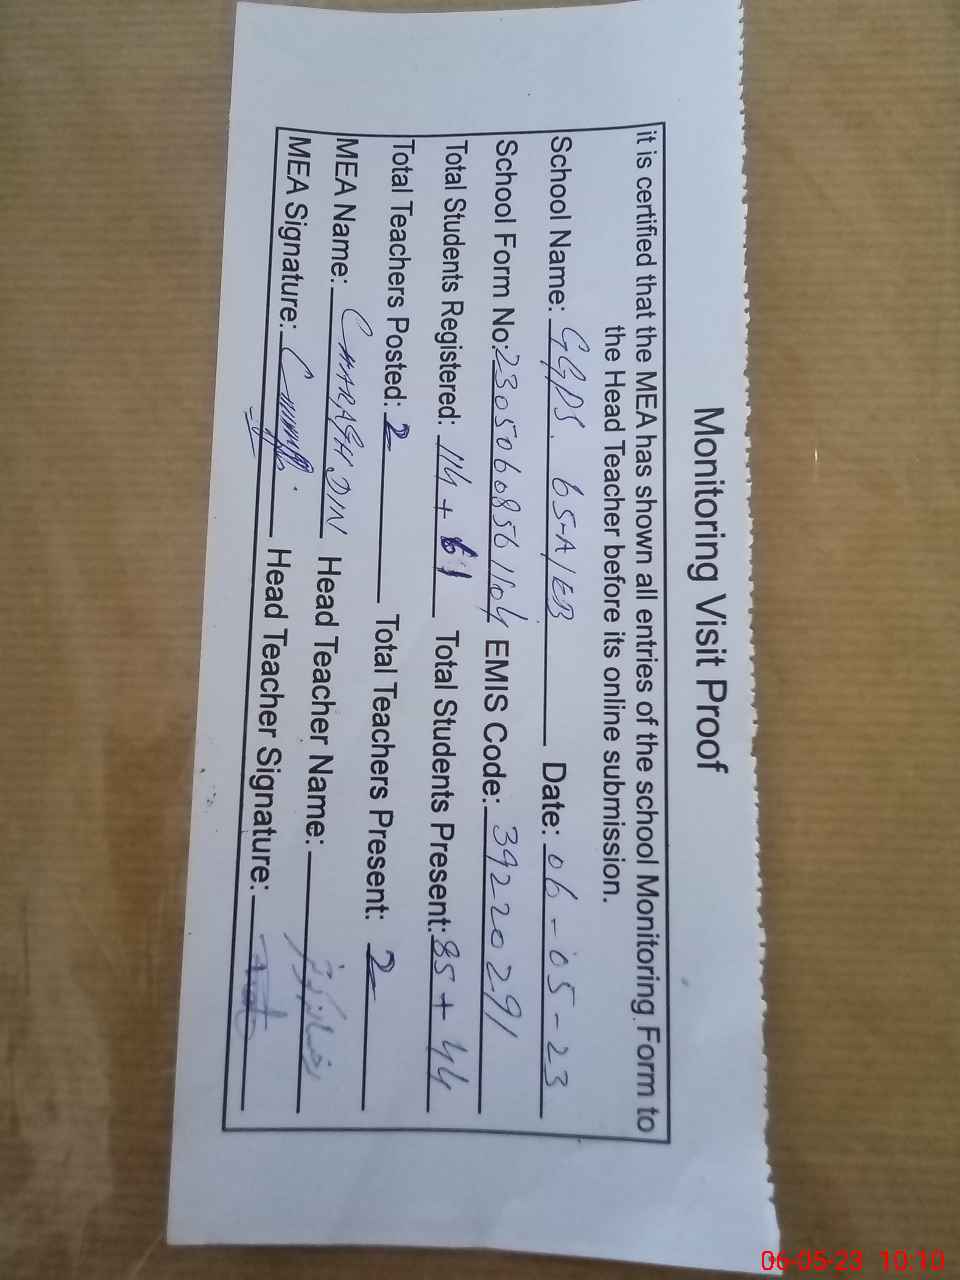 Monitoring Visit Proof
it is certified that the MEA has shown all entries of the school Monitoring Form to
the Head Teacher before its online submission.
School Name: GGPS. 65-A/EB Date: 06-05-23
School Form No: 23050608561104 EMIS Code: 39220291
Total Students Registered: 114 + 61 Total Students Present: 85 + 44
Total Teachers Posted: 2 Total Teachers Present: 2
MEA Name: CHARAGH DIN Head Teacher Name:
MEA Signature: Head Teacher Signature:
06-05-23 10:10